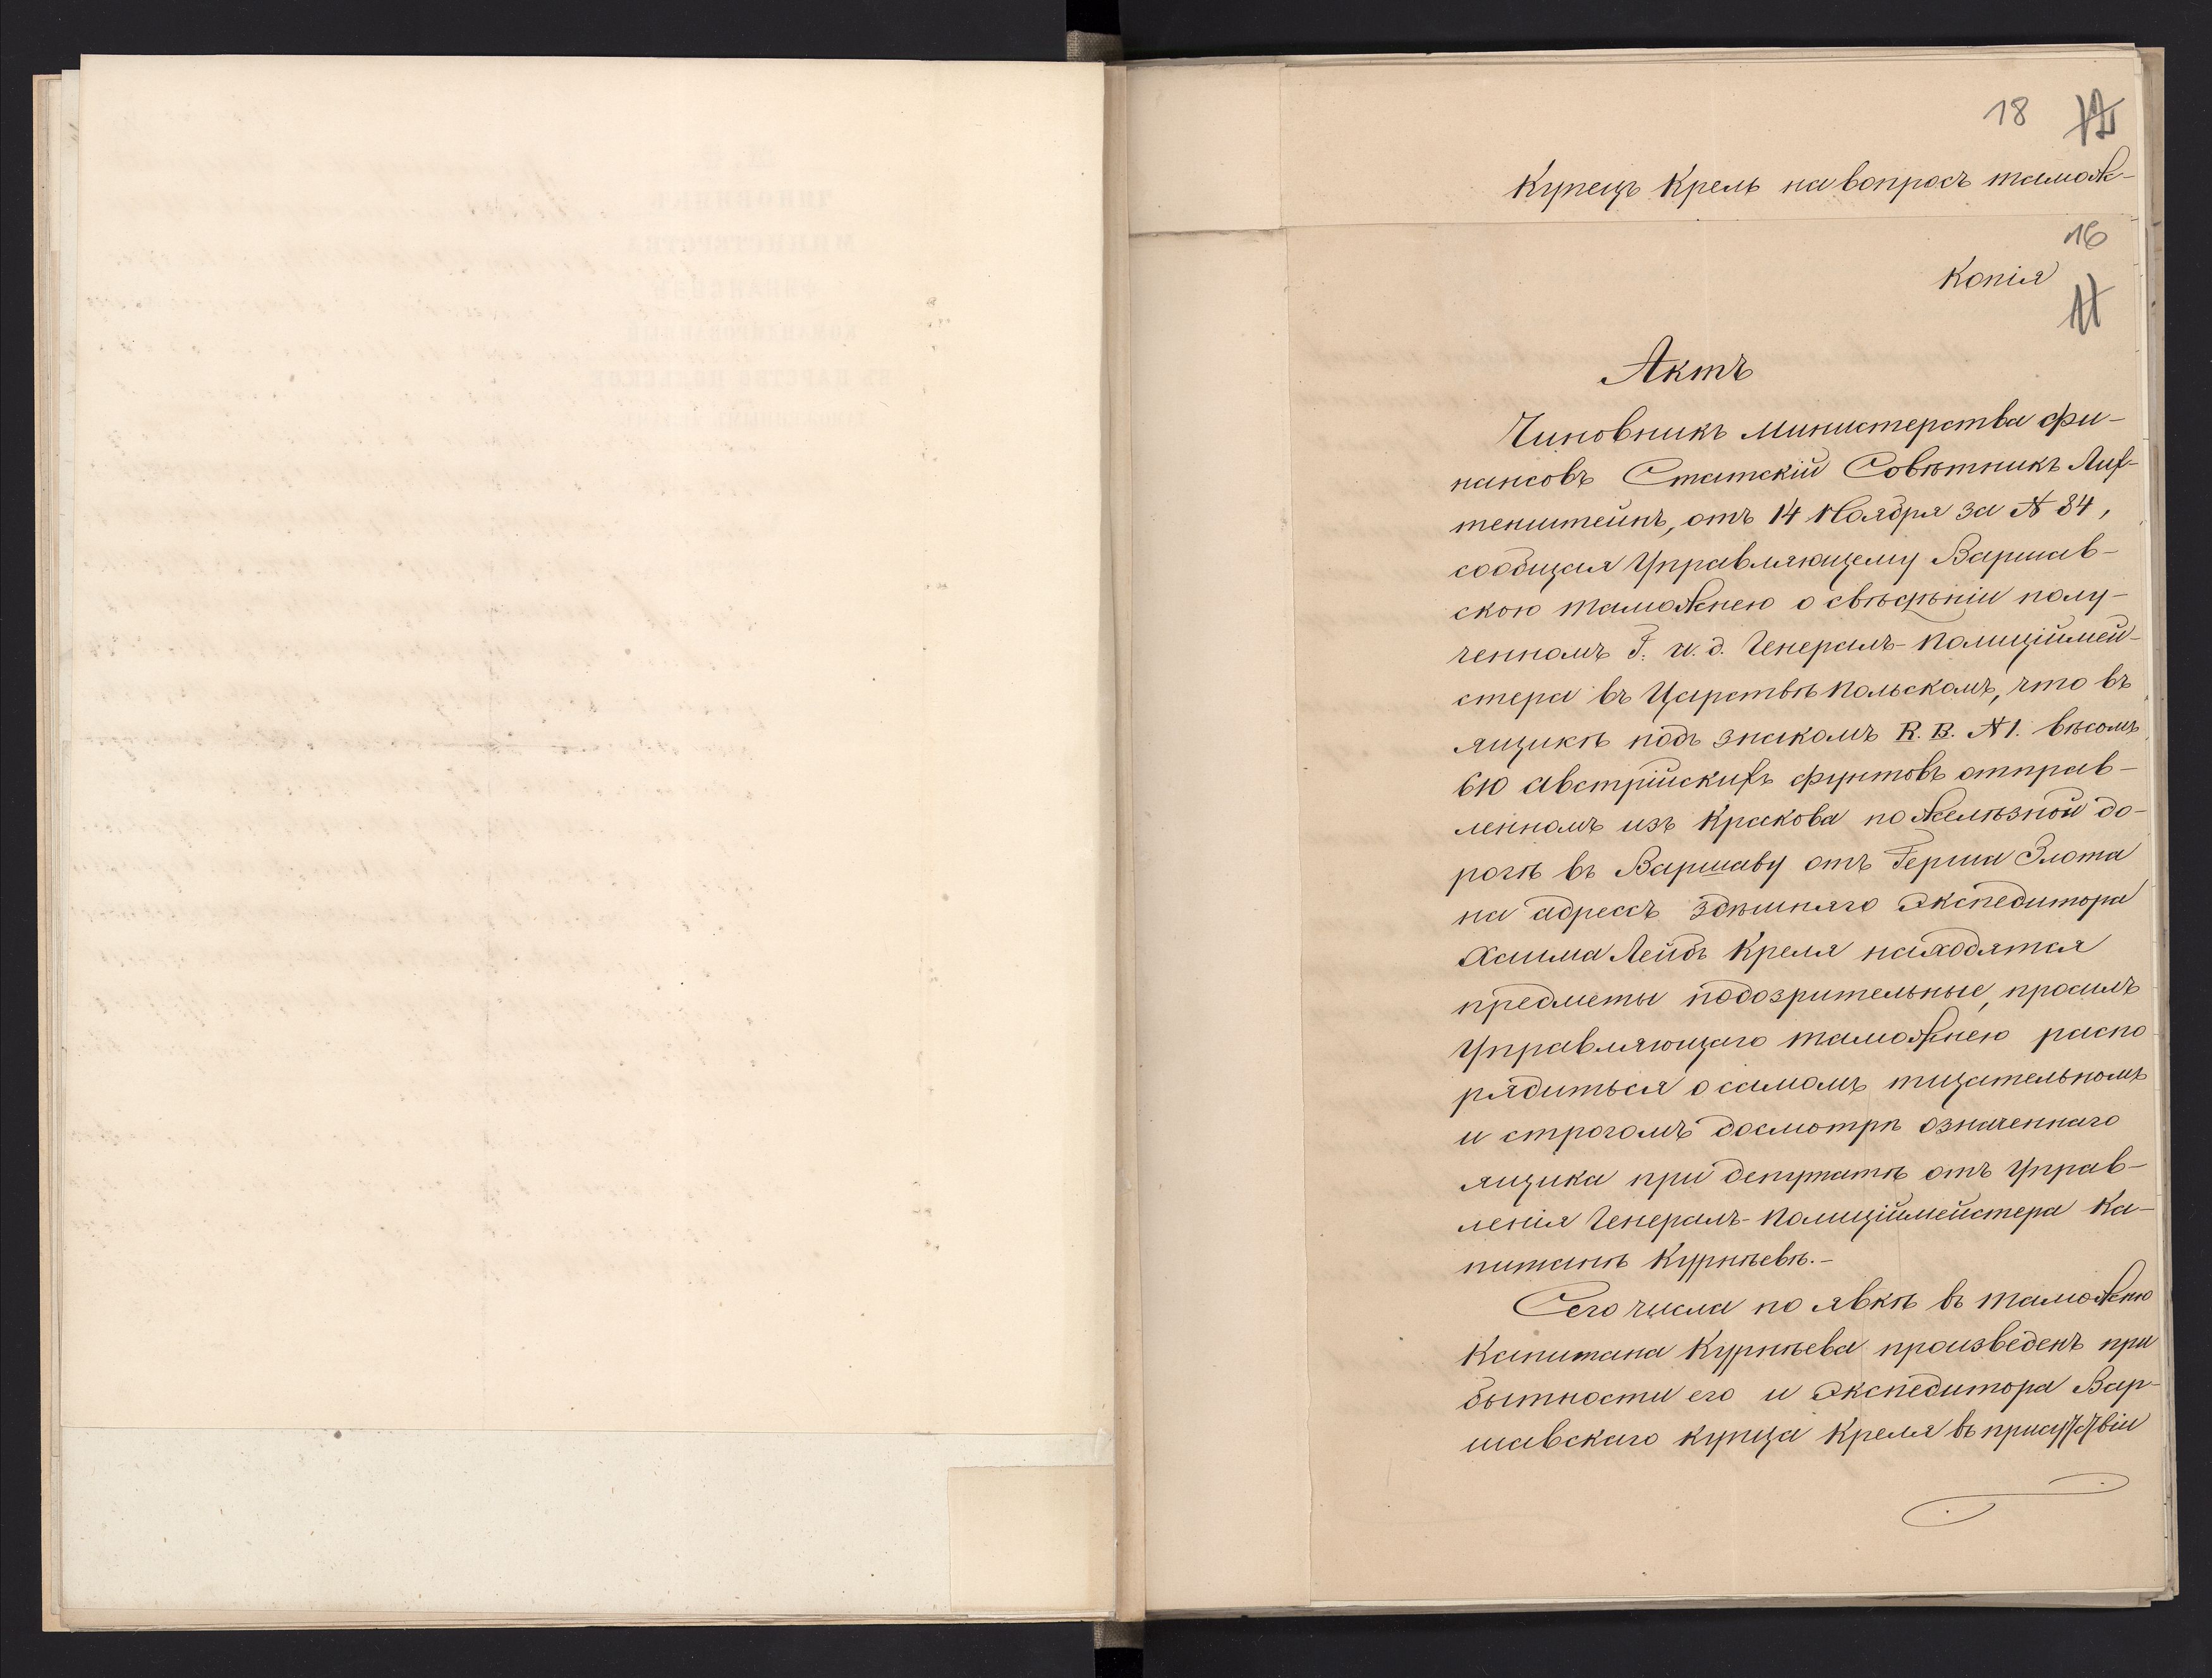 18 12
Купецъ Крель на вопросъ тамож-
16
Копія
11
Актъ
Чиновникъ Министерства Фи-
нансовъ Статскій Совѣтникъ Лих-
тенштейнъ, отъ 14 Ноября за № 84,
сообщая Управляющему Варшав-
скою таможнею о свѣдѣніи полу-
ченномъ Г. и. д. Генералъ-Полиціймей-
стера въ Царствѣ Польскомъ, что въ
ящикѣ подъ знакомъ R. B. № 1. вѣсомъ
610 австрійскихъ фунтовъ отправ-
ленномъ изъ Кракова по желѣзной до-
рогѣ въ Варшаву отъ Герша Злота
на адрессъ здѣшняго Экспедитора
Хаима Лейбъ Креля находятся
предметы подозрительные, просилъ
Управляющаго таможнею распо
рядиться о самомъ тщательномъ
и строгомъ досмотрѣ означеннаго
ящика при депутатѣ отъ Управ-
ленія Генералъ-Полиціймейстера Ка-
питанѣ Курнѣевѣ.-
Сего числа по явкѣ въ таможню
Капитана Курнѣева произведенъ при
бытности его и Экспедитора Вар-
шавскаго купца Креля въ присутствіи